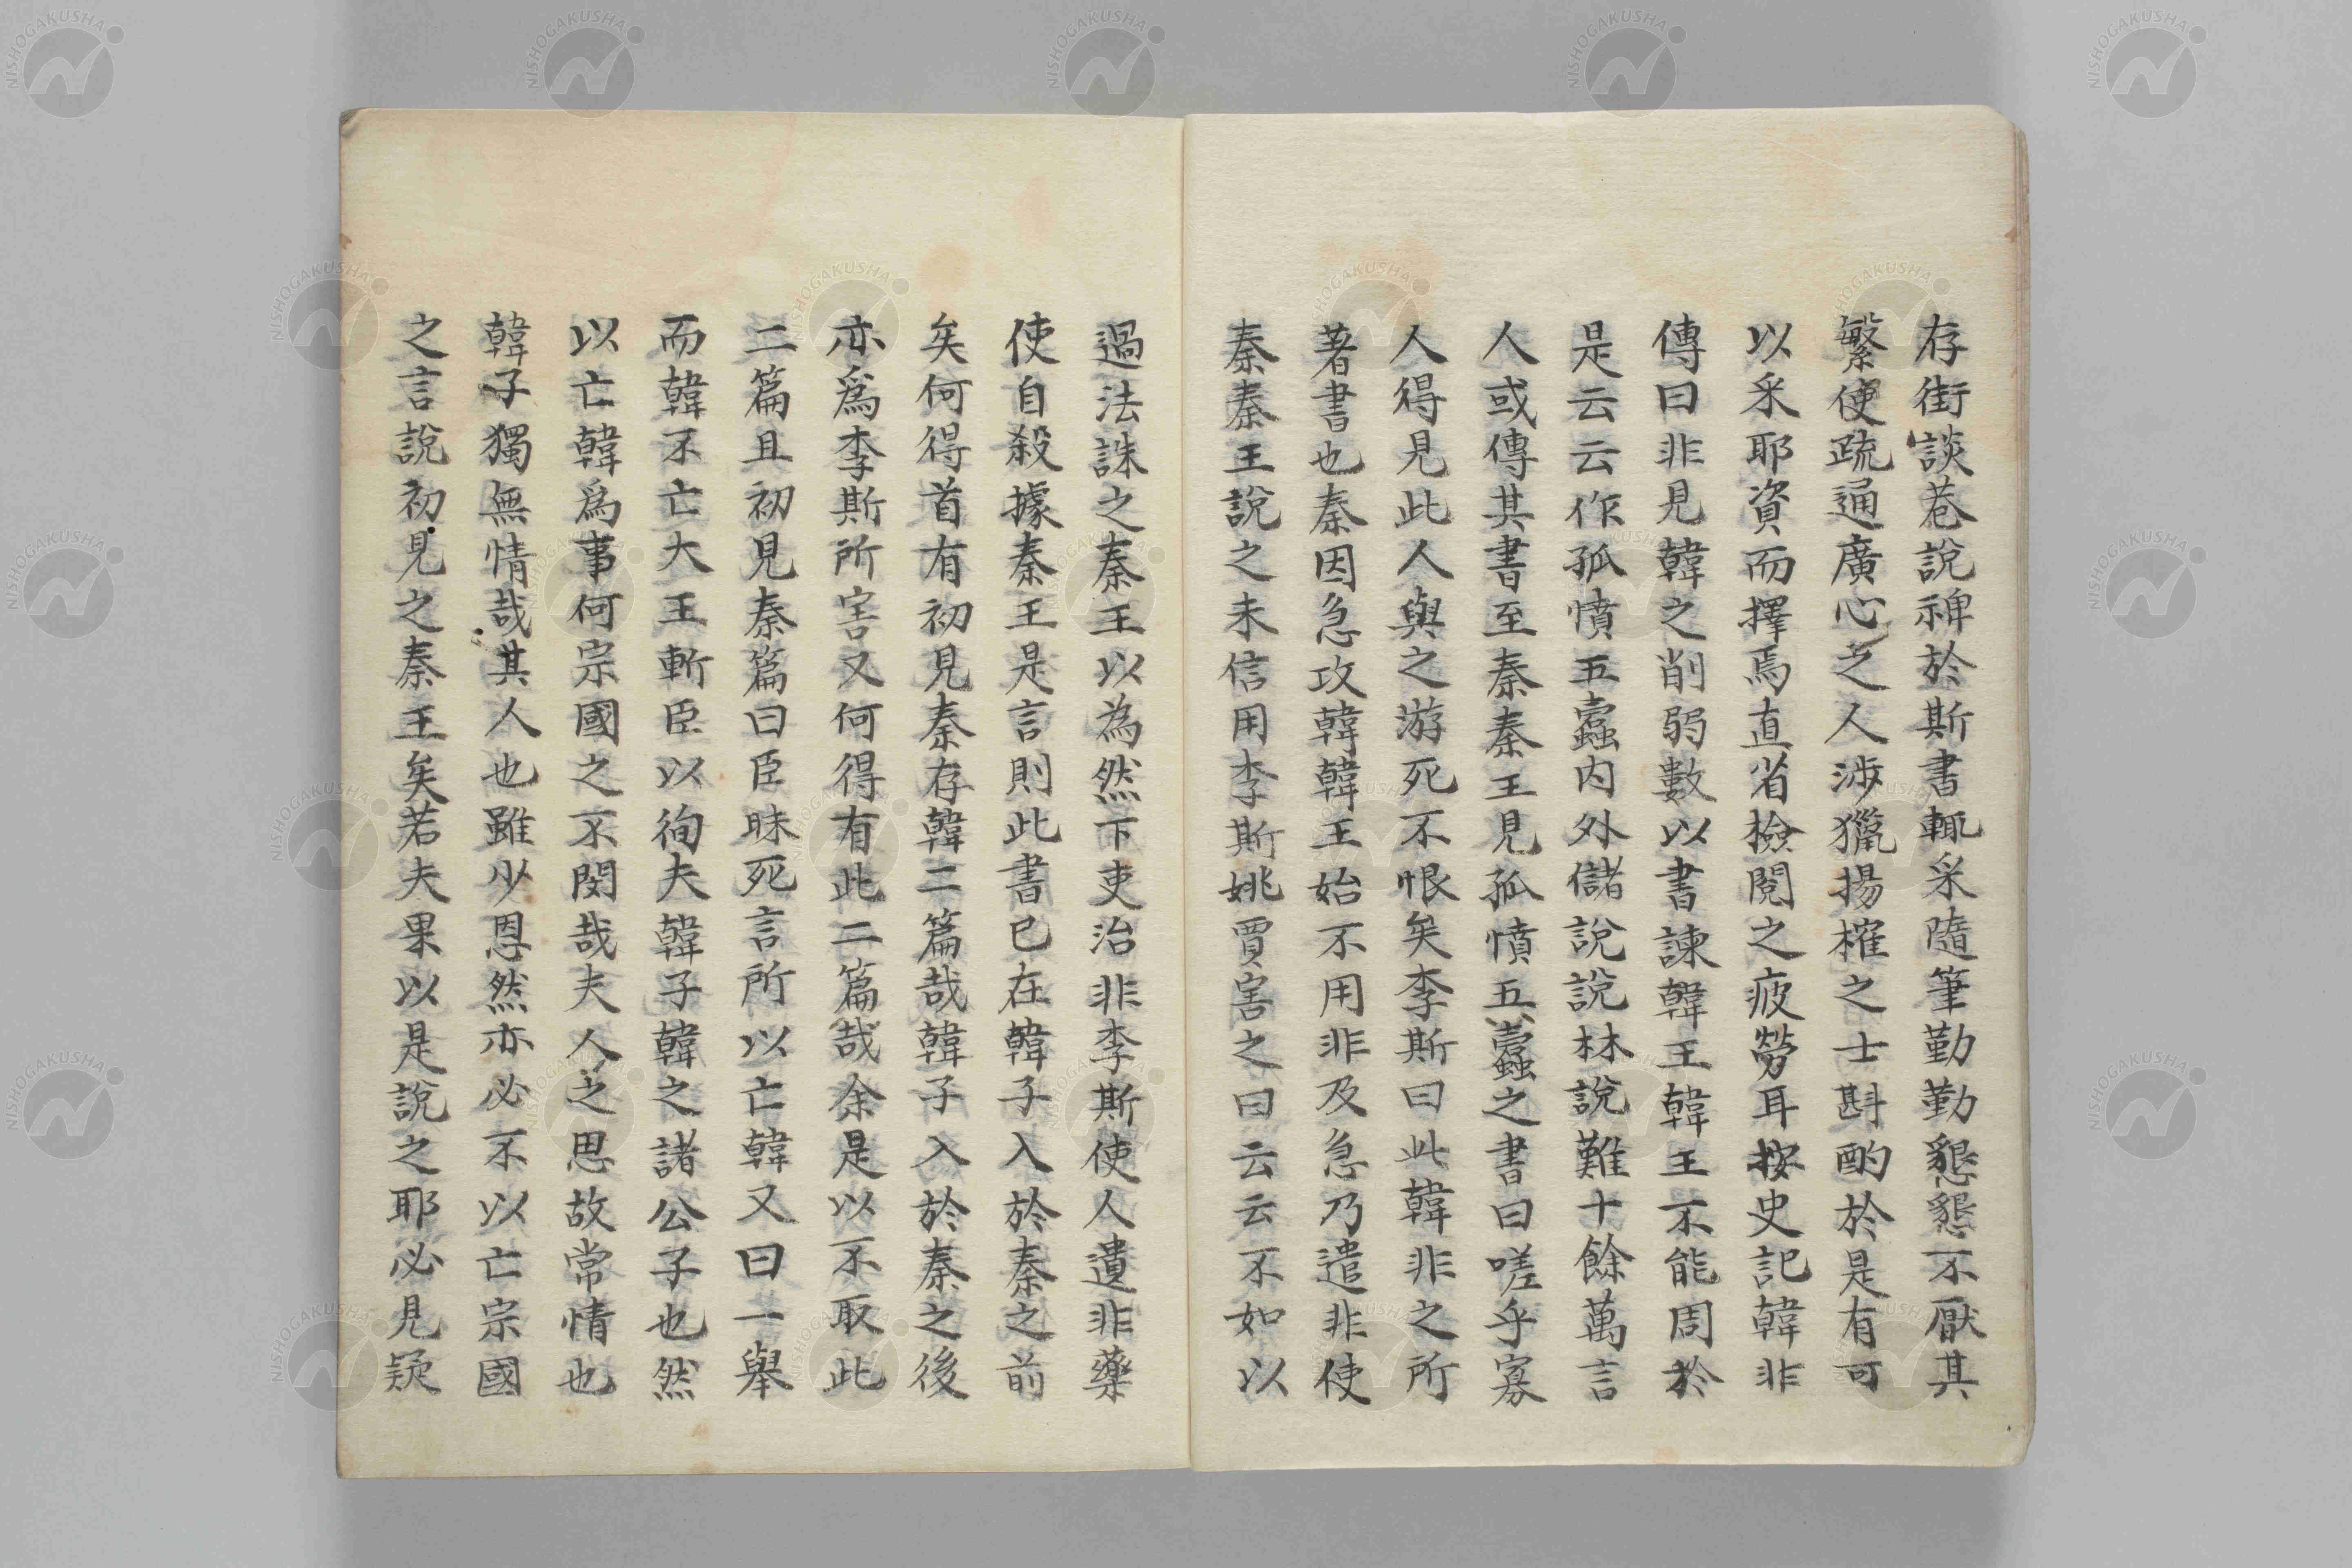 存街談巷說裨於斯書輒采隨筆勤勤懇懇不厭其
繁使疏通廣心之人涉獵揚搉之士斟酌於是有可
以采耶資而擇焉直省檢閱之疲勞耳按史記韓非
傳曰非見韓之削弱數以書諫韓王韓王不能周於
是云云作孤憤五蠹内外儲說說林說難十餘萬言
人或傳其書至秦秦王見孤憤五蠹之書曰嗟乎寡
人得見此人與之游死不恨矣李斯曰此韓非之所
著書也秦因急攻韓韓王始不用非及急乃遣非使
秦秦王說之未信用李斯姚賈害之曰云云不如以
過法誅之秦王以為然下吏治非李斯使人遺非藥
使自殺據秦王是言則此書已在韓子入於秦之前
矣何得首有初見秦存韓二篇哉韓子入於秦之後
亦爲李斯所害又何得有此二篇哉余是以不取此
二篇且初見秦篇曰臣昧死言所以亡韓又曰一舉
而韓不亡大王斬臣以徇夫韓子韓之諸公子也然
以亡韓爲事何宗國之不閔哉夫人之思故常情也
韓子獨無情哉其人也雖少恩然亦必不以亡宗國
之言說初見之秦王矣若夫果以是說之耶必見疑
NISHOGAKUSHA